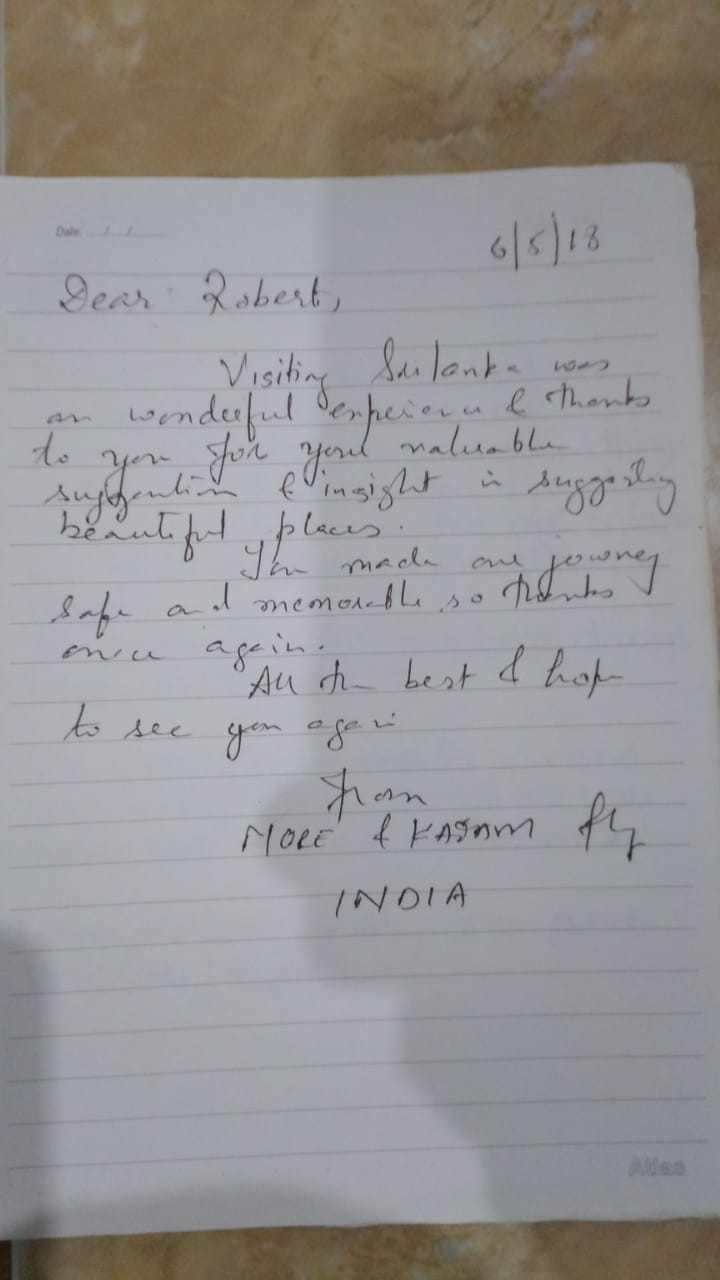 Date: ..../..../........
6/5/18
Dear Robert,
Visiting Srilanka was
an wonderful experience & thanks
to you for your valuable
suggestion & insight in suggesting
beautiful places.
You made our journey
safe and memorable, so thanks
once again.
All the best & hope
to see you again
From
MORE & KADAM fly
INDIA
Atlas